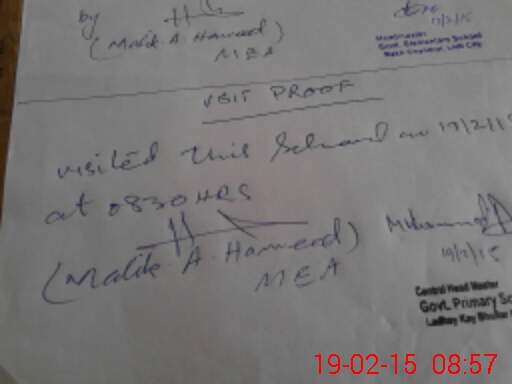 by
(Malik A. Hameed)
MEA
17/2/15
Headmaster
Govt. Elementary School
VISIT PROOF
visited this School on 19/2/15
at 0830 HRS
(Malik A. Hameed)
MEA
Muhammad
19/2/15
Central Head Master
Govt. Primary Sc
19-02-15 08:57